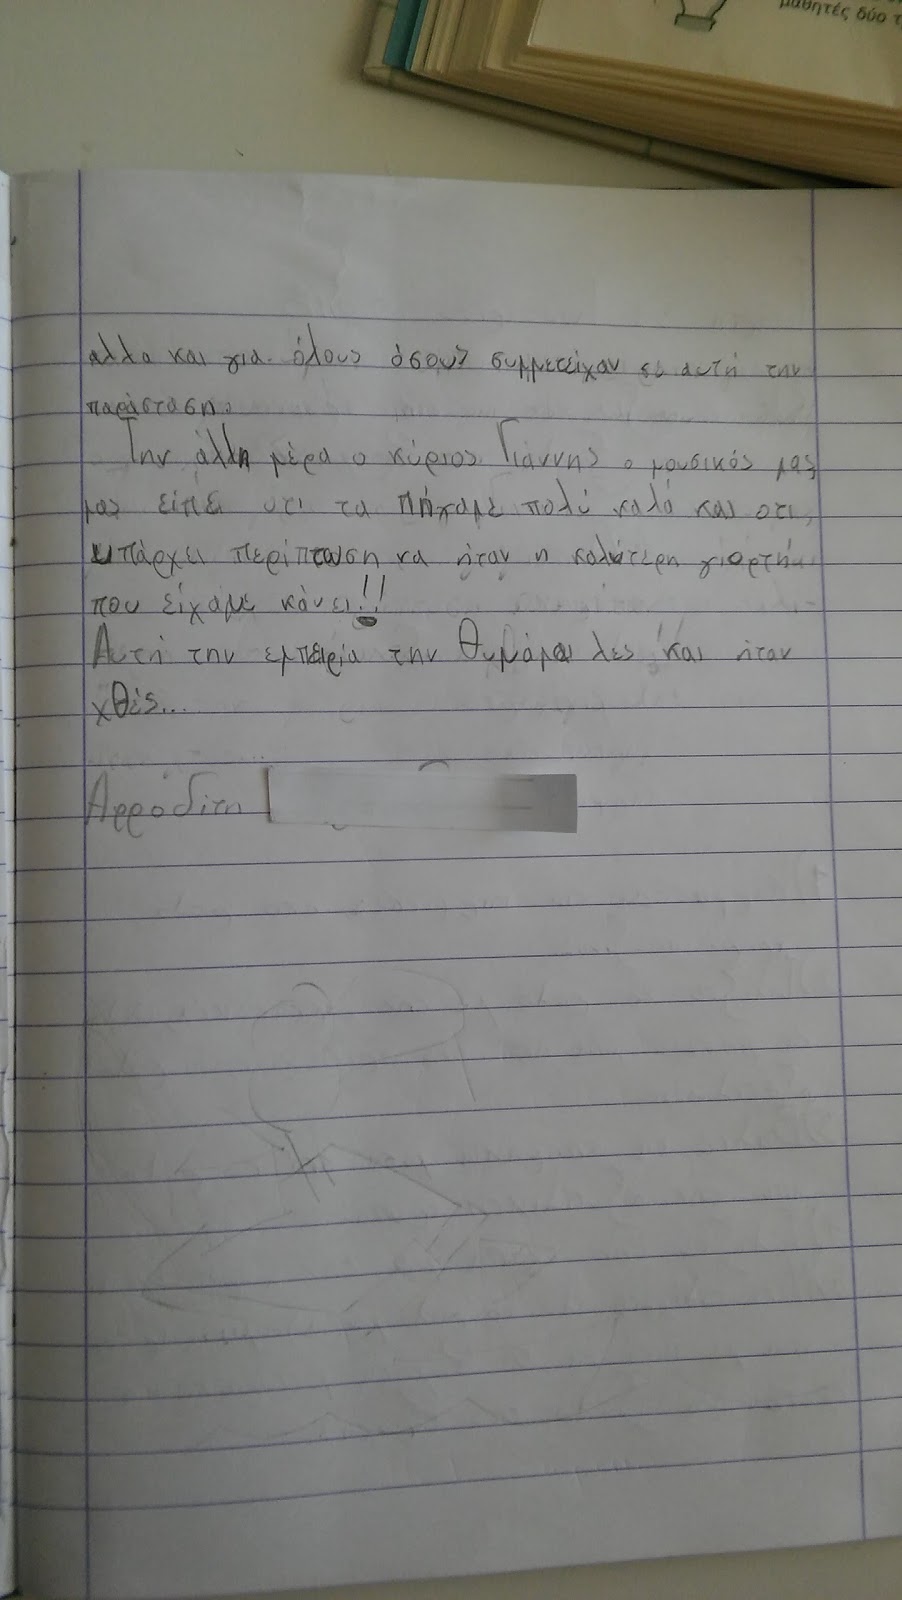 μαθητές δύο τ
αλλα και για όλους όσους συμμετείχαν σε αυτή την
παράσταση.
Την άλλη μέρα ο κύριος Γιάννης ο μουσικός μας,
μας είπε οτι τα πήγαμε πολύ καλά και οτι,
υπάρχει περίπτωση να ήταν η καλύτερη γιορτή
που είχαμε κάνει!!
Αυτή την εμπειρία την θυμάμαι λες και ήταν
χθές...
Αφροδίτη